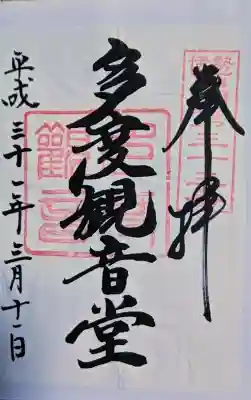 奉拝
多度観音堂
平成三十一年三月十一日